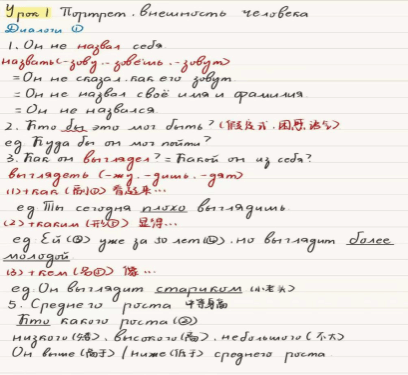 Урок 1 Портрет. внешность человека
Диалоги ①
1. Он не назвал себя
назвать(-зову. -зовёшь. -зовут)
= Он не сказал. как его зовут.
= Он не назвал своё имя и фамилия.
= Он не назвался.
2. Кто бы это мог быть? (假定式. 虚拟语气)
eg. Куда бы он мог пойти?
3. Как он выглядел? = Какой он из себя?
выглядеть (-жу. -дишь. -дят)
(1) +как (副①) 看起来…
eg. Ты сегодня плохо выглядишь.
(2) +каким (形⑤) 显得…
eg. Ей(③) уже за 30 лет(②). но выглядит более
молодой.
(3) +кем (名⑤) 像…
eg. Он выглядит стариком (小老头)
5. Среднего роста 中等身高
Кто какого роста(②)
низкого(矮). высокого(高). небольшого(不大)
Он выше(高于) / ниже(低于) среднего роста.